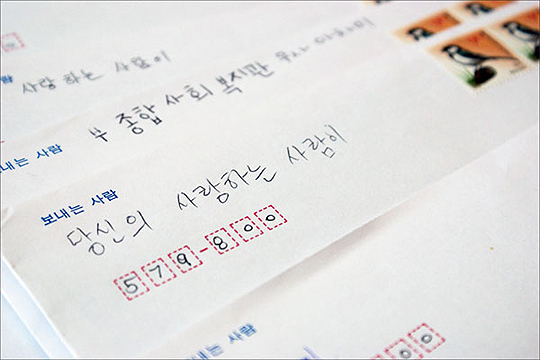 사람
사랑 하는 사람이
보내는 사람
부 종합 사회 복지관
보내는 사람
당신의 사랑하는 사람이
579-800
보내는 사람
00